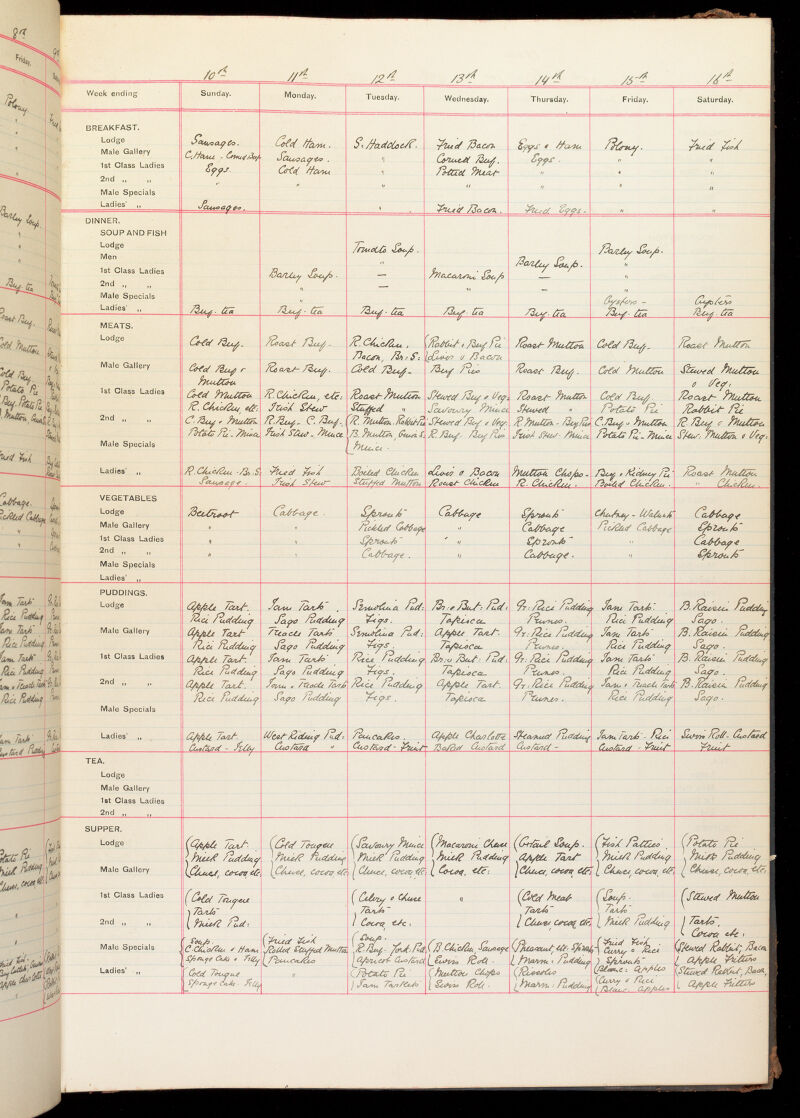 10th 11th 12th 13th 14th 15th 16th
Week ending Sunday. Monday. Tuesday. Wednesday. Thursday. Friday. Saturday.
BREAKFAST.
Lodge Sausages. Cold Ham. S. Haddock. Fried Bacon Eggs & Ham Polony. Fried Fish
Male Gallery C. Ham - Corned Beef Sausages. " Corned Beef. Eggs. " "
1st Class Ladies Eggs Cold Ham " Potted Meat " " "
2nd " " " " " " " " "
Male Specials
Ladies' " Sausages. " Fried Bacon. Fried Eggs. " "
DINNER.
SOUP AND FISH
Lodge Tomato Soup. Barley Soup.
Men " Barley Soup. "
1st Class Ladies Barley Soup. — Macaroni Soup — "
2nd " " " — " — "
Male Specials " Oysters - Oysters
Ladies' " Beef-tea Beef-tea Beef-tea Beef-tea Beef-tea Beef-tea Beef-tea
MEATS.
Lodge Cold Beef. Roast Beef. R. Chicken. Rabbit & Beef Pie Roast Mutton Cold Beef. Roast Mutton
Bacon, Br: S: Liver & Bacon
Male Gallery Cold Beef & Roast Beef. Cold Beef. Beef Pies Roast Beef. Cold Mutton Stewed Mutton
Mutton & Veg:
1st Class Ladies Cold Mutton R. Chicken, etc: Roast Mutton Stewed Beef & Veg: Roast Mutton Cold Beef. Roast Mutton
R. Chicken, etc: Irish Stew Stuffed " Savoury Mince Stewed " Potato Pie Rabbit Pie
2nd " " C. Beef & Mutton R. Beef - C. Beef. R. Mutton Rabbit Pie Stewed Beef & Veg: R. Mutton - Beef Pies C. Beef & Mutton R. Beef & Mutton
Potato Pie - Mince Irish Stew - Mince B. Mutton, R. Beef Beef Pies Irish Stew - Mince Potato Pie - Mince Stew. Mutton & Veg:
Male Specials Mince -
Ladies' " R. Chicken - Br: S: Fried Fish Boiled Chicken Liver & Bacon Mutton Chops - Beef & Kidney Pie Roast Mutton
Sausage Irish Stew Stuffed Mutton Roast Chicken R. Chicken. Boiled Chicken. " Chicken.
VEGETABLES
Lodge Beetroot Cabbage. Sprouts Cabbage Sprouts Chutney - Walnuts Cabbage
Male Gallery " " Pickled Cabbage " Cabbage Pickled Cabbage Sprouts
1st Class Ladies " " Sprouts " " Sprouts " Cabbage
2nd " " " " Cabbage. " Cabbage. " Sprouts
Male Specials
Ladies' "
PUDDINGS.
Lodge Apple Tart. Jam Tarts. Semolina Pud: Br: & But: Pud: Gr: Rice Pudding Jam Tarts B. Raisin Pudding
Rice Pudding Sago Pudding Figs. Tapioca Prunes. Rice Pudding Sago.
Male Gallery Apple Tart Treacle Tarts Semolina Pud: Apple Tart. Gr: Rice Pudding Jam Tarts B. Raisin Pudding
Rice Pudding Sago Pudding Figs. Tapioca Prunes. Rice Pudding Sago.
1st Class Ladies Apple Tart. Jam Tarts Rice Pudding Br: & But: Pud: Gr: Rice Pudding Jam Tarts B. Raisin Pudding
Rice Pudding Sago Pudding Figs. Tapioca Prunes. Rice Pudding Sago.
2nd " " Apple Tart. Jam & Treacle Tarts Rice Pudding Apple Tart. Gr: Rice Pudding Jam & Treacle Tarts B. Raisin Pudding
Rice Pudding Sago Pudding Figs. Tapioca Prunes. Rice Pudding Sago.
Male Specials
Ladies' " Apple Tart West Riding Pud: Pancakes. Apple Charlotte Steamed Pudding Jam Tarts - Rice Swiss Roll. Custard
Custard - Jelly Custard " Custard - Fruit Baked Custard Custard - Custard - Fruit Fruit
TEA.
Lodge
Male Gallery
1st Class Ladies
2nd " "
SUPPER.
Lodge Apple Tart. Cold Tongue Savoury Mince Macaroni Cheese Oxtail Soup. Fish Patties Potato Pie
Milk Pudding Milk Pudding Milk Pudding Milk Pudding Apple Tart Milk Pudding Milk Pudding
Male Gallery Cheese, cocoa, etc. Cheese, cocoa, etc. Cheese, cocoa, etc. Cocoa, etc: Cheese, cocoa, etc. Cheese, cocoa, etc. Cheese, cocoa, etc:
1st Class Ladies Cold Tongue Celery & Cheese " Cold Meat Soup. Stewed Mutton
Tarts Tarts Tarts Tarts
2nd " " Milk Pud: Cocoa, etc. Cheese, cocoa, etc. Milk Pudding Tarts.
Cocoa etc:
Male Specials Soup. Fried Fish Soup. B. Chicken, Sausage Pheasant, etc. Fried Fish Stewed Rabbit, Bacon
C. Chicken & Ham Rolled Stuffed Mutton R. Beef. York. Pud. Swiss Roll. Marm: Pudding Curry & Rice Apple Fritters
Sponge Cake & Jelly Pancakes Apricot Custard Sprouts
Blanc: Apples
Ladies' " Cold Tongue " Potato Pie Mutton Chops Rissoles Curry & Rice Stewed Rabbit, Bacon,
Sponge Cake - Jelly Jam Tartlets Swiss Roll. Marm: Pudding Blanc - apples Apple Fritters